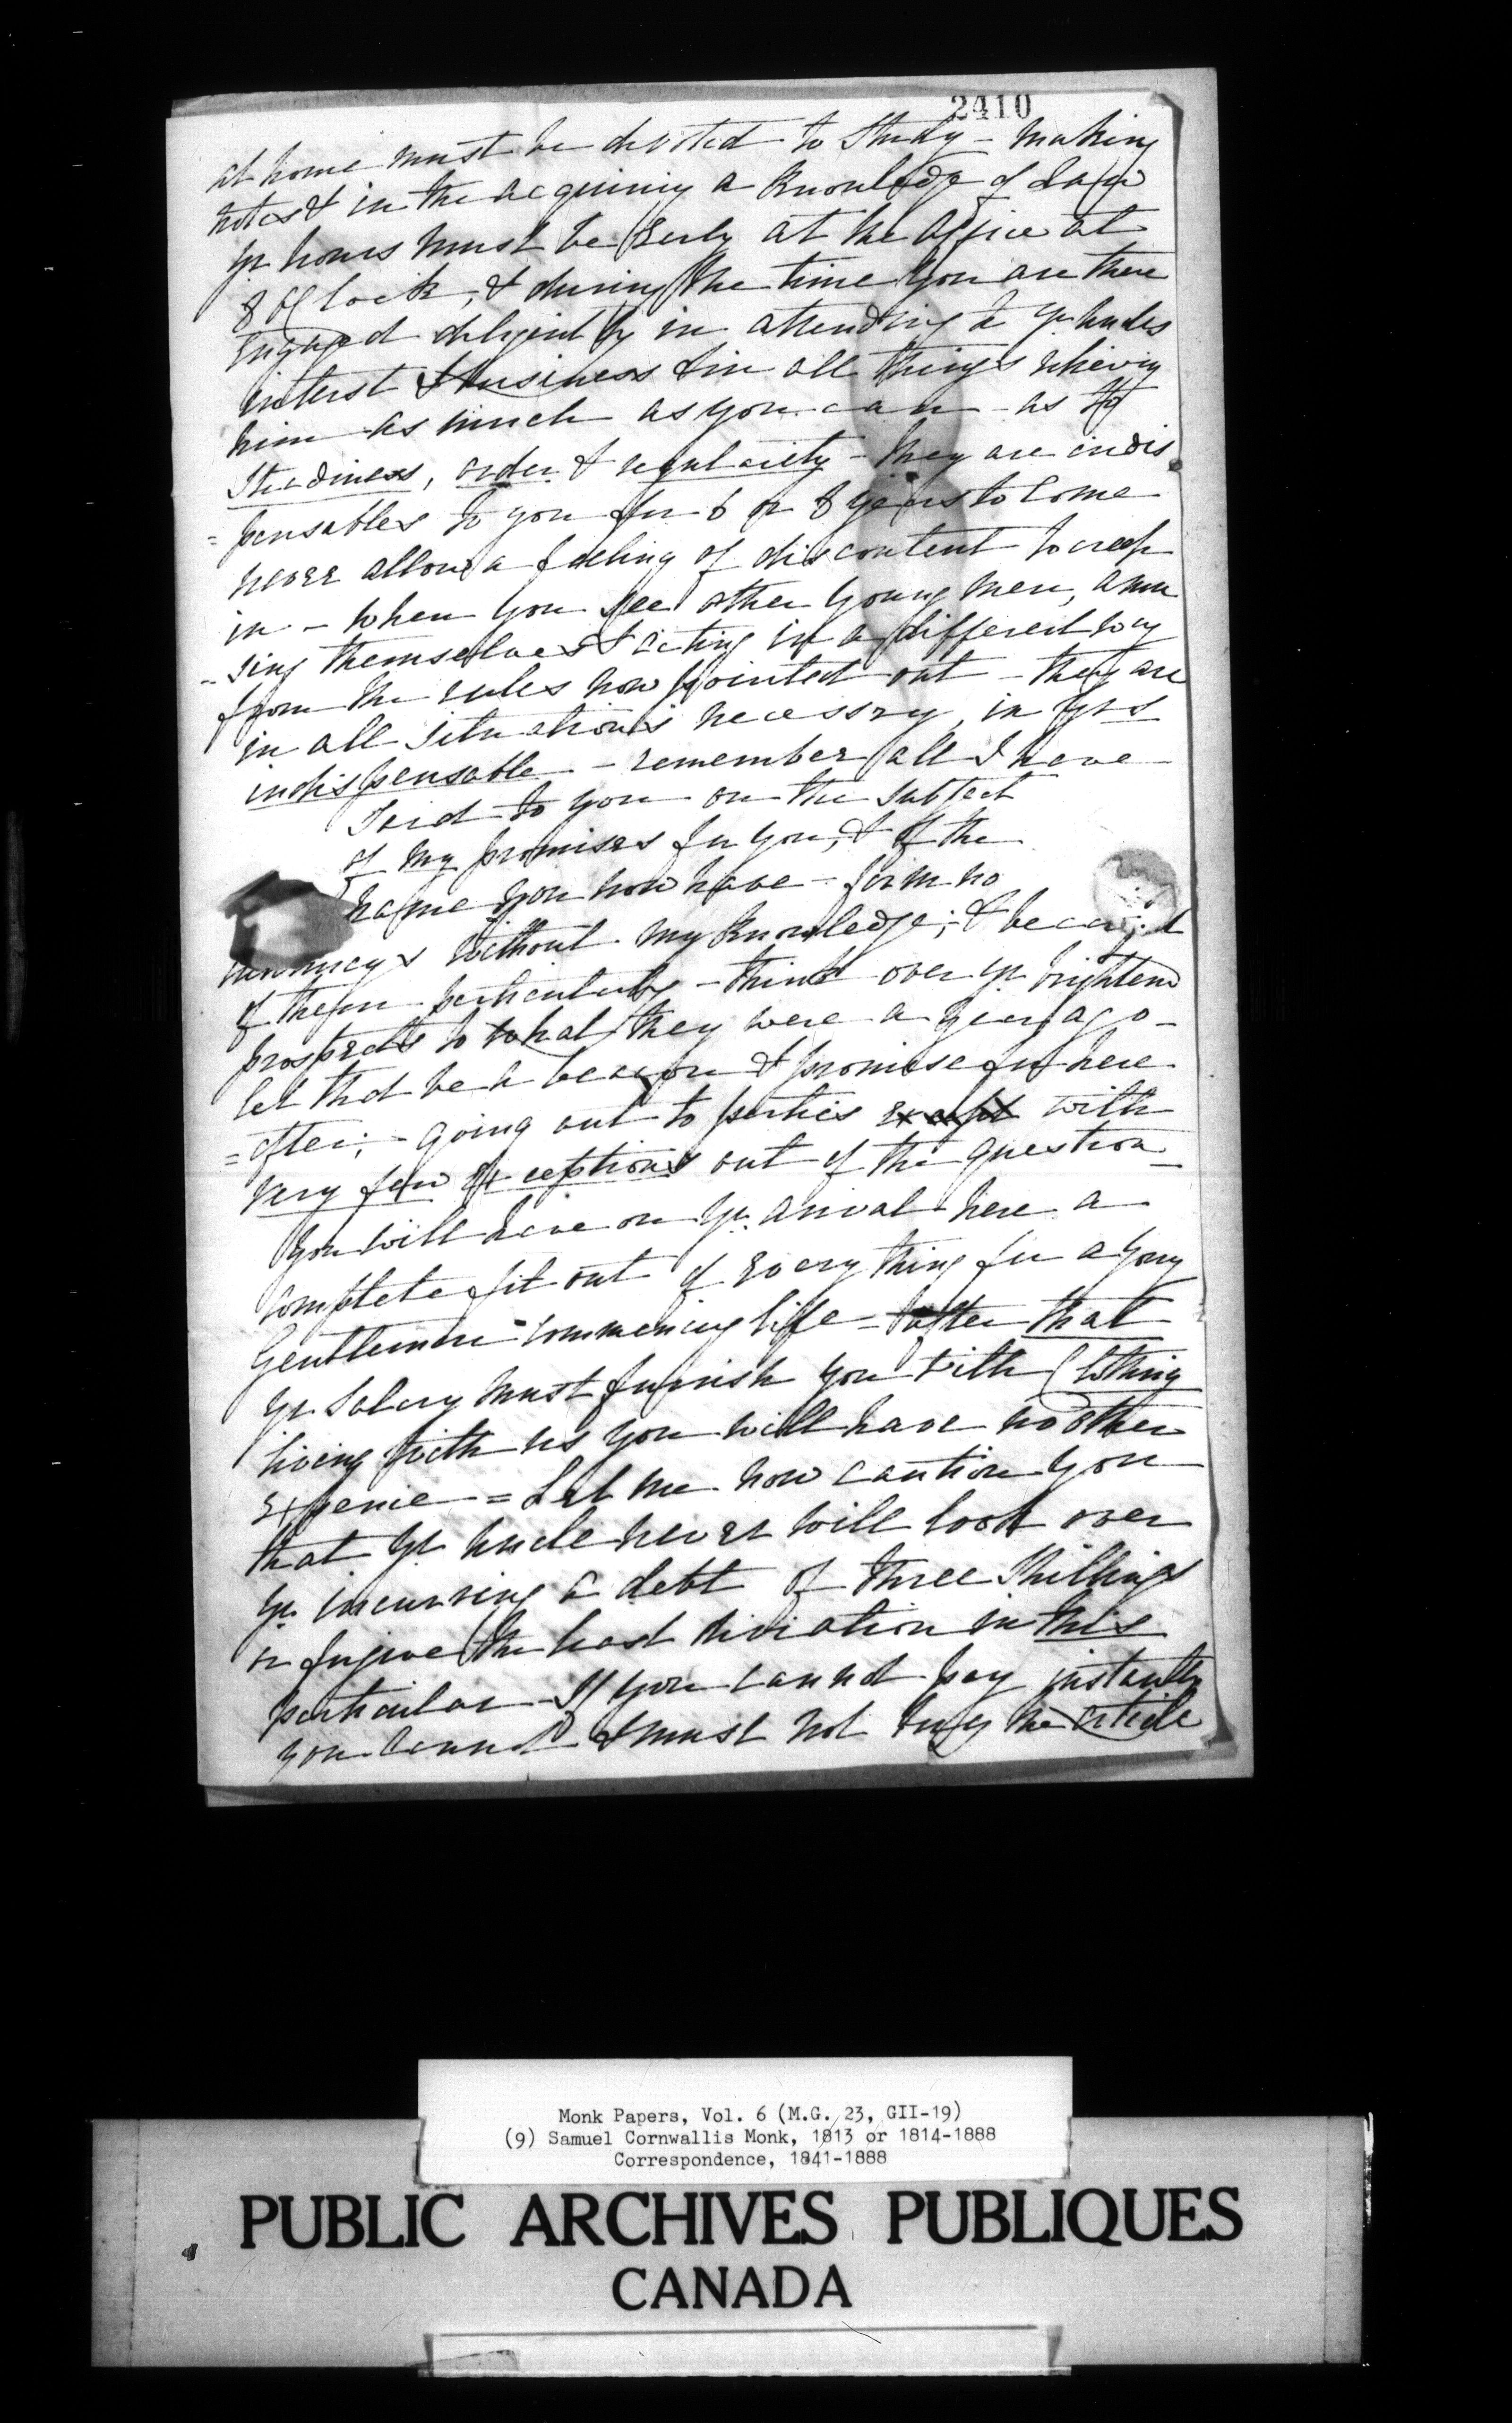 2410
at home must be devoted to Study - making
notes & in the acquiring a Knowledge of Law
yr hours must be Early at the Office at
8 o Clock, & during the time you are there
Engaged diligently in attending to yr Uncles
interest & business & in all things relieving
him as much as you can - as to
Steadiness, order & regularity - they are indis
=pensables to you for 6 or 8 years to Come
never allow a feeling of discontent to creep
in - when you see other Young men, amu
=sing themselves & acting in a different way
from the rules now pointed out - they are
in all situations necessary, in yrs
indispensable - remember all I have
Said to you on the subject
of my promises for you, & of the
name you now have - form no
without my Knowledge; & be careful
of them particularly - think over yr brightend
prospects to what they were a year ago -
let that be a beacon & promise for here
=after; - going out to parties except with
very few exceptions out of the question
You will have on yr. arrival here a
complete fit out of Every thing for a young
Gentleman commencing life - after that
yr Salary must furnish you with Clothing
living with us you will have no other
Expence = Let me now caution you
that yr Uncle never will look over
yr. incurring a debt of three Shillings
or forgive the least diviation in this
particular - If you cannot pay instantly
you cannot & must not buy the article
Monk Papers, Vol. 6 (M.G. 23, GII-19)
(9) Samuel Cornwallis Monk, 1813 or 1814-1888
Correspondence, 1841-1888
PUBLIC ARCHIVES PUBLIQUES
CANADA